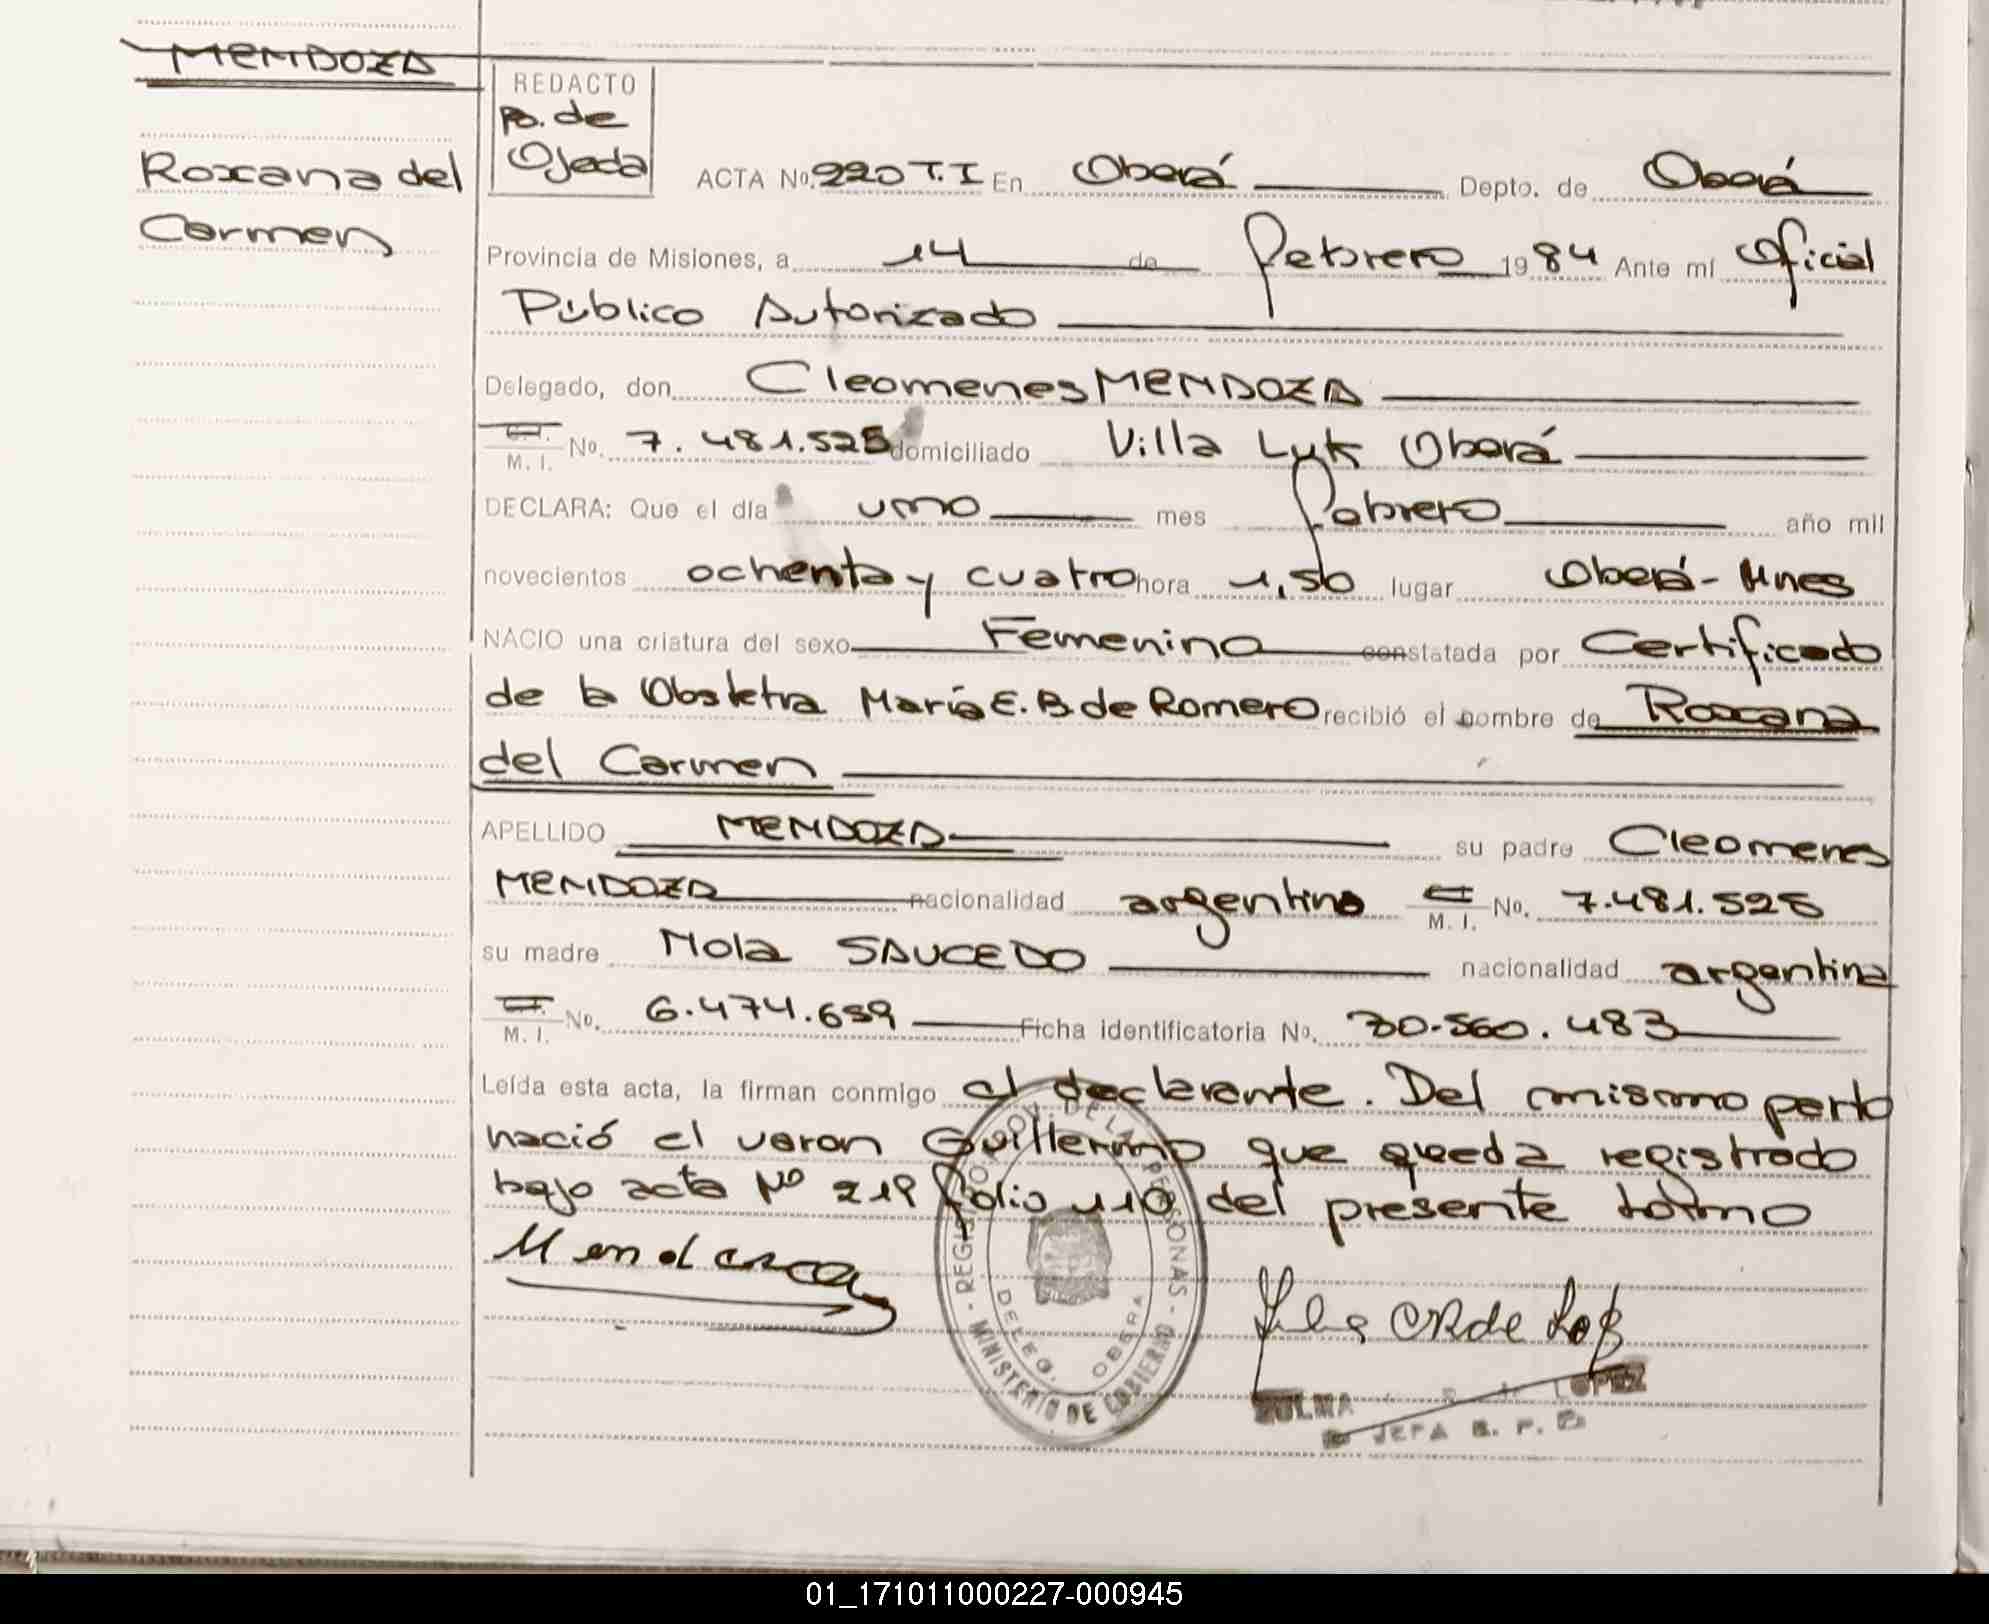 MENDOZA
Roxana del
Carmen
REDACTO
B. de
Ojeda
ACTA Nº. 220 T.I En Oberá Depto. de Oberá
Provincia de Misiones, a 14 de febrero 1984 Ante mí Oficial
Público Autorizado
Delegado, don Cleomenes MENDOZA
M. I. No. 7.481.525 domiciliado Villa Lyk Oberá
DECLARA: Que el día uno mes febrero año mil
novecientos ochenta y cuatro hora 1,50 lugar Oberá - Mnes
NACIO una criatura del sexo Femenino constatada por Certificado
de la Obstetra María E. B. de Romero recibió el nombre de Roxana
del Carmen
APELLIDO MENDOZA su padre Cleomenes
MENDOZA nacionalidad argentino M. I. No. 7.481.525
su madre Mola SAUCEDO nacionalidad argentina
M. I. No. 6.474.659 Ficha identificatoria No. 30.560.483
Leída esta acta, la firman conmigo el declarante. Del mismo parto
nació el varon Guillermo que queda registrado
bajo acta Nº 219 folio 110 del presente tomo
Mendoza
REGISTRO DE LAS PERSONAS - MINISTERIO DE GOBIERNO
DELEG. OBERA
ZULMA LOPEZ
JEFA
01_171011000227-000945